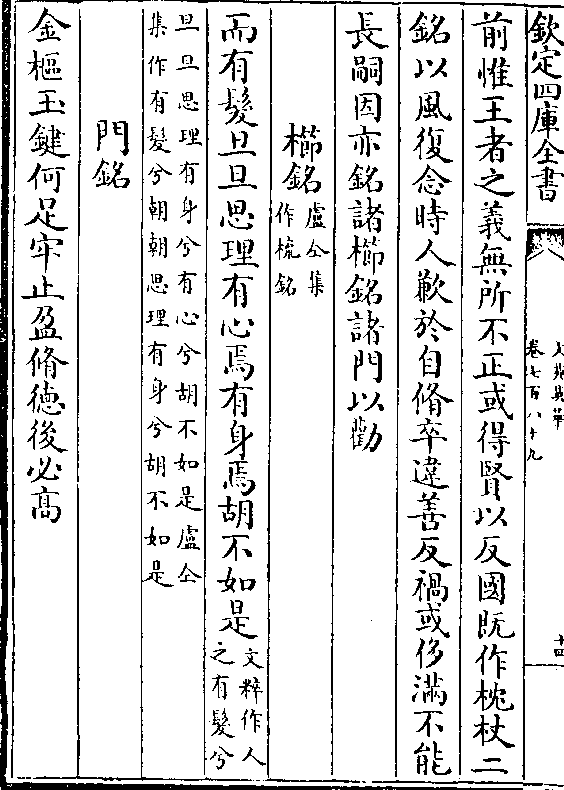 欽定四庫全書
文苑英華
卷七百八十九
十四
前惟王者之義無所不正或得賢以反國既作枕杖二
銘以風復念時人歉於自脩卒違善反禍或侈滿不能
長嗣因亦銘諸櫛銘諸門以勸
櫛銘盧仝集作梳銘
而有髮旦旦思理有心焉有身焉胡不如是文粹作人之有髮兮
旦旦思理有身兮有心兮胡不如是盧仝
集作有髮兮朝朝思理有身兮胡不如是
門銘
金樞玉鍵何足牢止盈脩德後必高